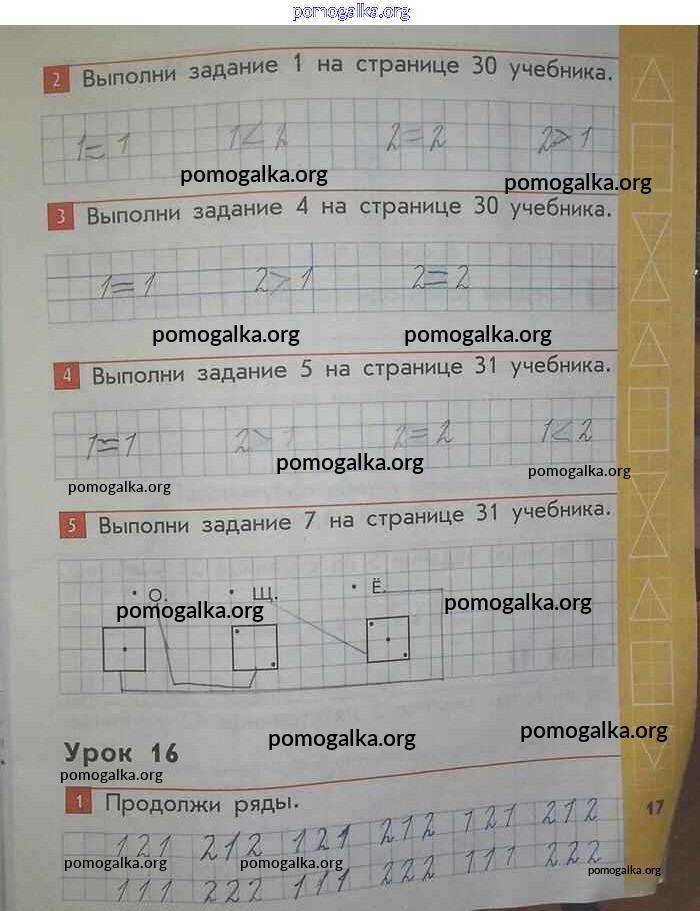 pomogalka.org
2 Выполни задание 1 на странице 30 учебника.
1=1 1<2 2=2 2>1
pomogalka.org pomogalka.org
3 Выполни задание 4 на странице 30 учебника.
1=1 2>1 2=2
pomogalka.org pomogalka.org
4 Выполни задание 5 на странице 31 учебника.
1=1 2>1 2=2 1<2
pomogalka.org pomogalka.org pomogalka.org
5 Выполни задание 7 на странице 31 учебника.
О. Щ. Ё.
pomogalka.org pomogalka.org
Урок 16
pomogalka.org pomogalka.org
pomogalka.org
1 Продолжи ряды.
17
121 212 121 212 121 212
pomogalka.org pomogalka.org pomogalka.org
111 222 111 222 111 222